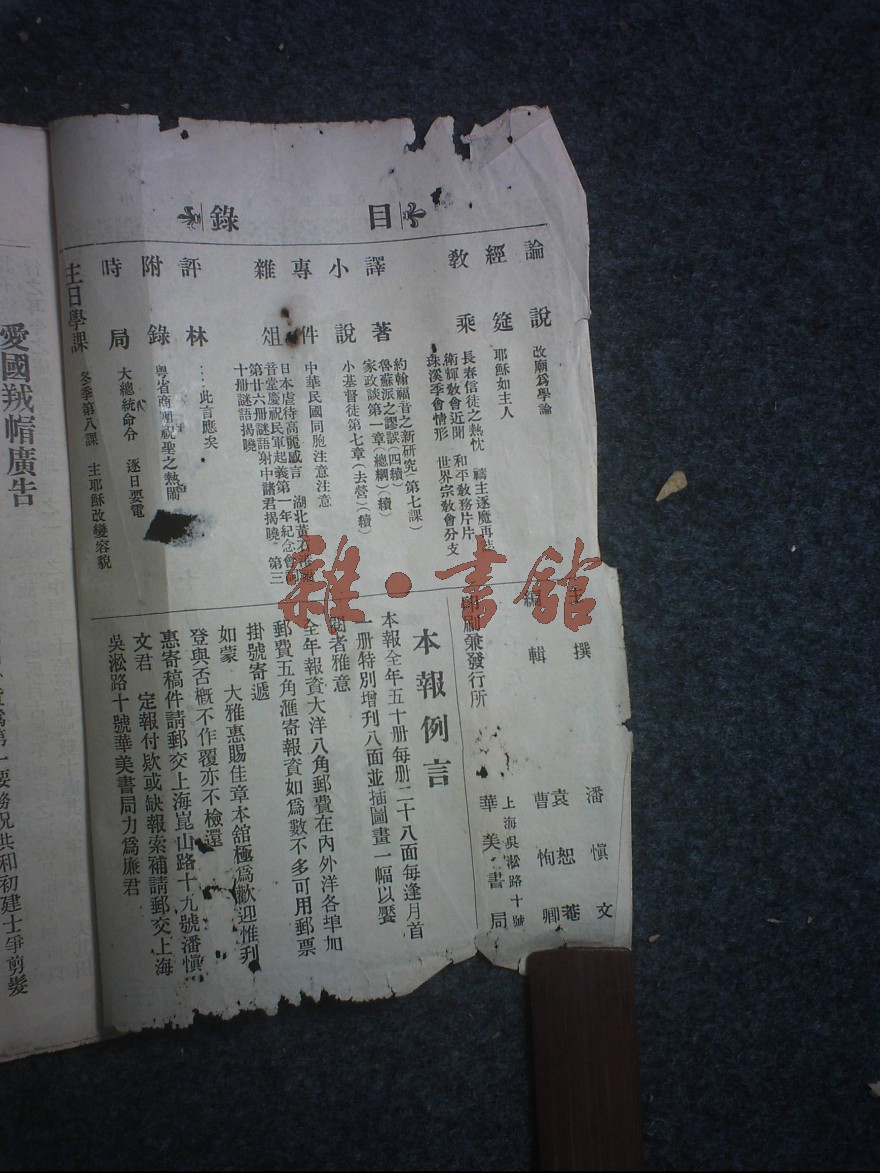 目錄
論說 改廟為學論
經筵 耶穌如主人
教乘 長春信徒之熱忱 禱主逐魔再
衛輝教會近聞 和平教務片片
珠溪季會情形 世界宗教會分支
譯著 約翰福音之新研究(第七課)
魯蘇派之謬誤(四續)
家政談第一章(總綱)(續)
小說 小基督徒第七章(去營)(續)
專件 中華民國同胞注意注意
雜俎 日本虐待高麗感言 湖北黃石
音堂慶祝民軍起義第一年紀念會
第廿六册謎語射中諸君揭曉 第三
十册謎語揭曉
評林 …此言應矣
附錄 粵省商團祝聖之熱鬧
時局 大總統命令 逐日要電
主日學課 冬季第八課 主耶穌改變容貌
主撰 潘慎文
編輯 袁恕菴
曹恂卿
印刷兼發行所 上海吳淞路十號
華美書局
本報例言
本報全年五十册每册二十八面每逢月首
一册特別增刊八面並插圖畫一幅以饜
閱者雅意
全年報資大洋八角郵費在內外洋各埠加
郵費五角滙寄報資如為數不多可用郵票
掛號寄遞
如蒙 大雅惠賜佳章本舘極為歡迎惟刋
登與否概不作覆亦不檢還
惠寄稿件請郵交上海崑山路十九號潘慎
文君 定報付欵或缺報索補請郵交上海
吳淞路十號華美書局力為廉君
愛國羢帽廣告
第一要務況共和初建士爭剪髮
雜·書館